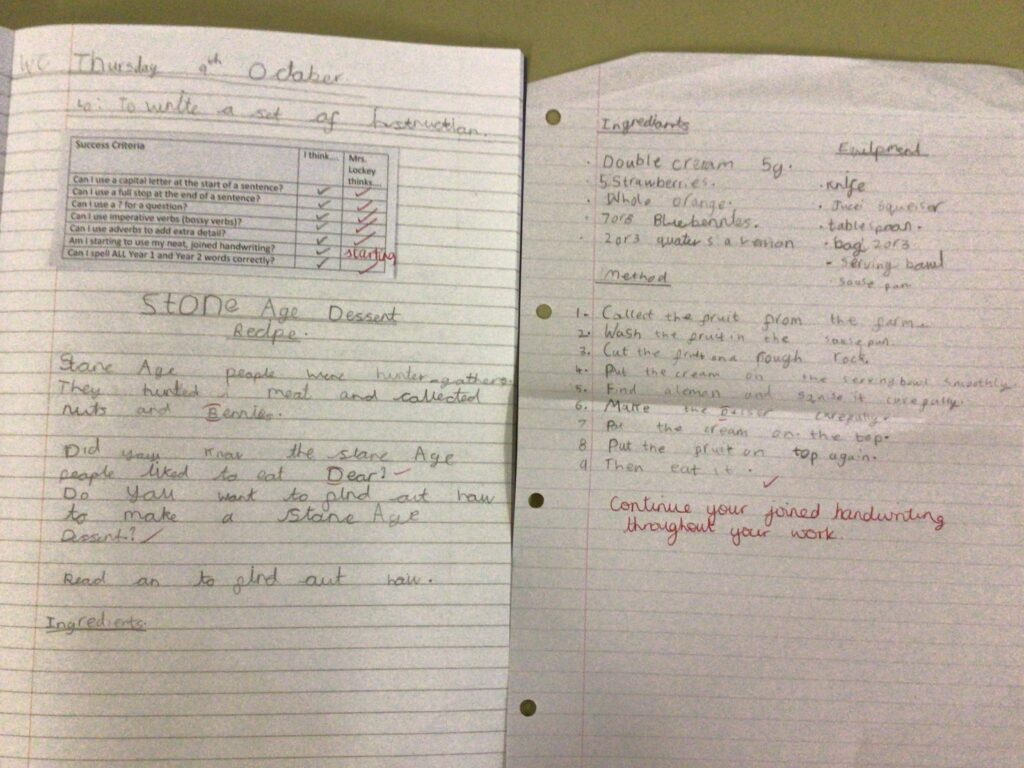 WC Thursday 9th October.
Lo: To write a set of Instruction.
Success Criteria
I think....
Mrs. Lockey thinks....
Can I use a capital letter at the start of a sentence? ✓ ✓
Can I use a full stop at the end of a sentence? ✓ ✓
Can I use a ? for a question? ✓ ✓
Can I use imperative verbs (bossy verbs)? ✓ ✓
Can I use adverbs to add extra detail? ✓ ✓
Am I starting to use my neat, joined handwriting? ✓ starting
Can I spell ALL Year 1 and Year 2 words correctly? ✓ ✓
Stone Age Dessert
Recipe.
Stone Age people were hunter-gathers.
They hunted meat and collected
nuts and Berries.
Did you know the stone Age
people liked to eat Dear? ✓
Do you want to find out how
to make a stone Age
Dessert? ✓
Read on to find out how.
Ingredients
Ingrediants
· Double cream 5g.
· 5 Strawberries.
· Whole orange.
· 7or8 Blueberries.
· 2or3 quaters a
Equipment
· knife
· Jucei squeiser
· tablespoon.
· bag 2or3
· serving bowl
· sause pan
Method
1. Collect the fruit from the farm
2. Wash the fruit in the sausepan.
3. Cut the fruit on a rough rock.
4. Put the cream on the serving bowl smoothly.
5. Find a leman and sqase it carefully.
6. Make the carefully.
7 Put the cream on the top.
8 Put the fruit on top again.
9 Then eat it.
✓
Continue your joined handwriting
throughout your work.